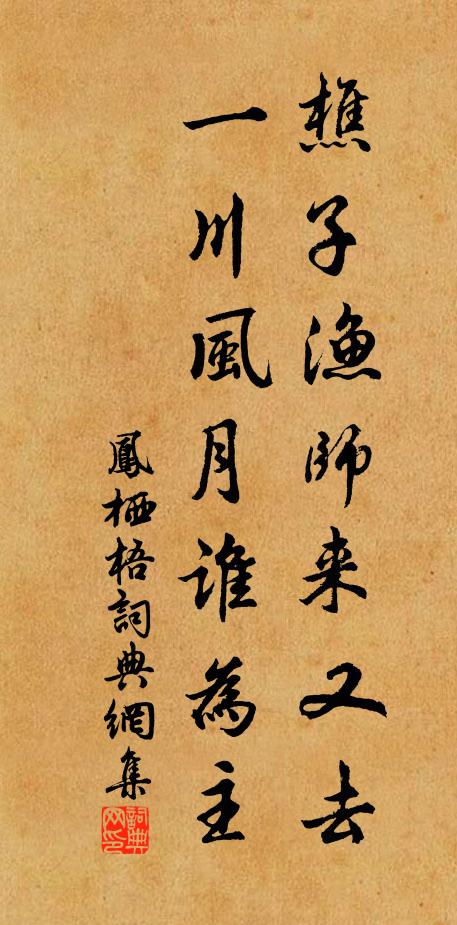 樵子漁師来又去
一川風月誰為主
鳳栖梧詞典網集
詞典网印